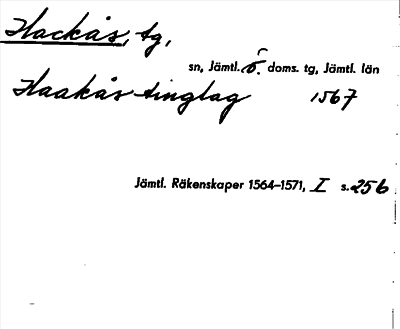 Hackås, tg,
sn, Jämtl. ö. doms. tg, Jämtl. län
Haakås tinglag 1567
Jämtl. Räkenskaper 1564–1571, I s. 256